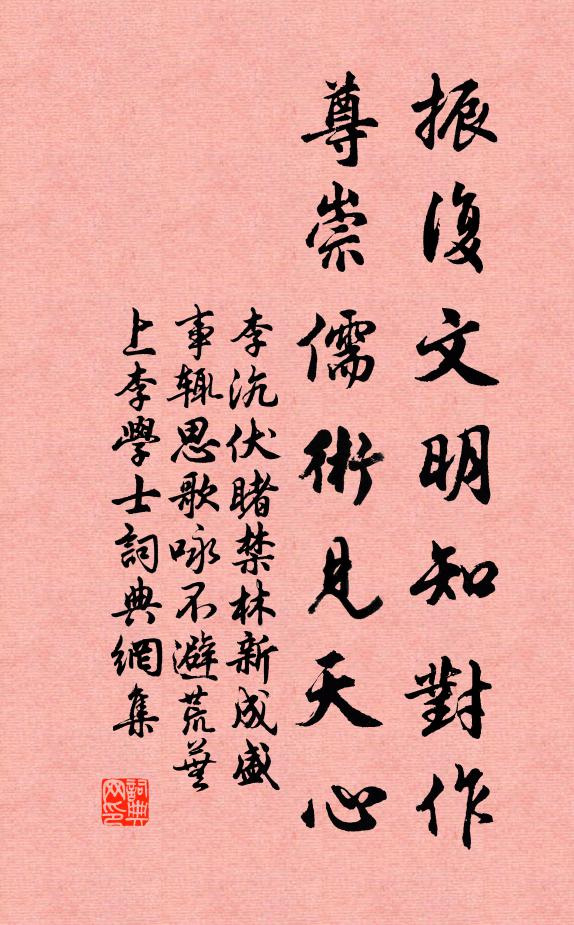 振復文明知對作
尊崇儒術見天心
李沆伏睹禁林新成盛
事輒思歌咏不避荒蕪
上李學士詞典網集
詞典
网印